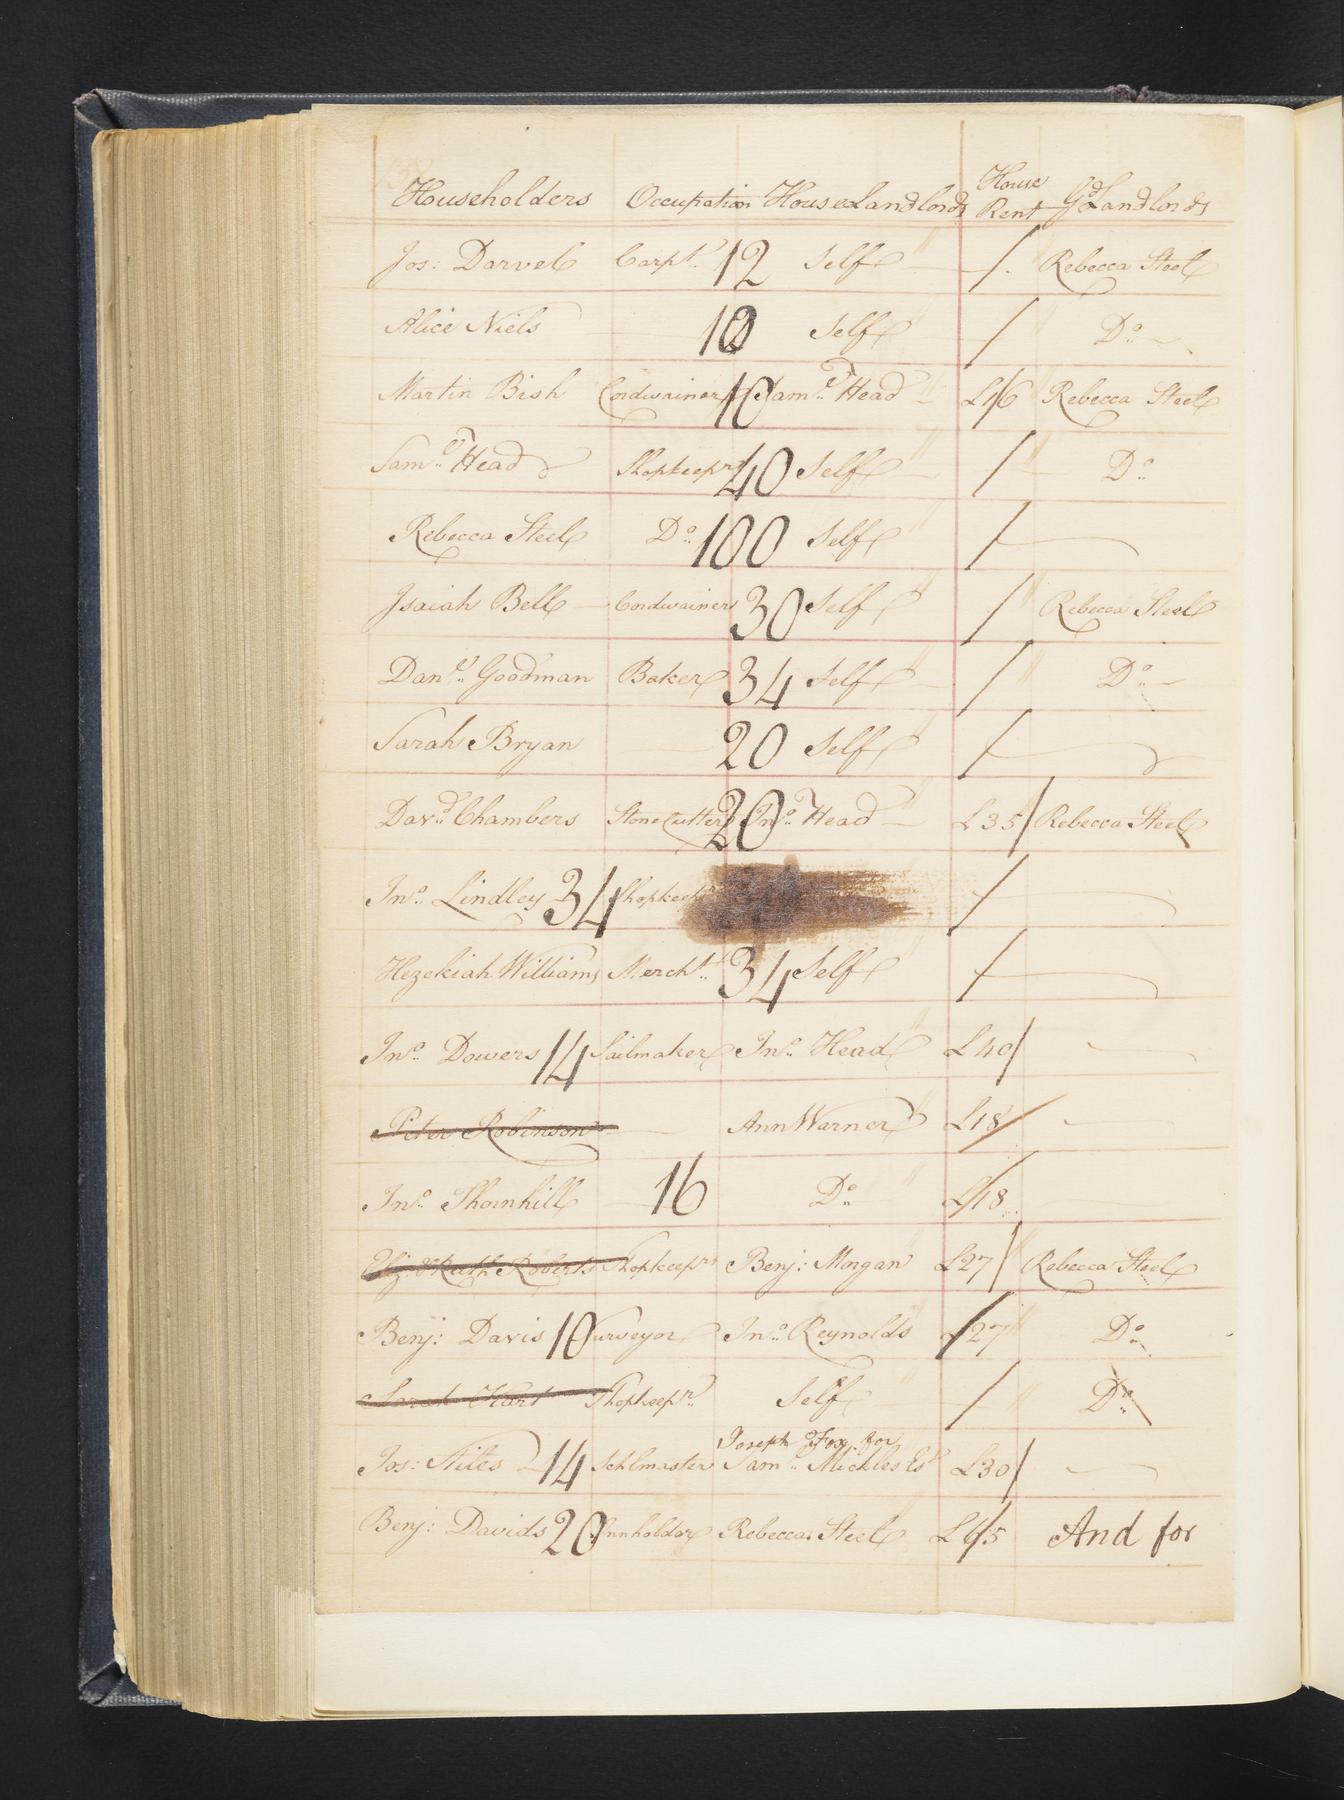 Householders Occupation House Landlords House Rent Gd Landlords
Jos: Darvel Carpt. 12 Self / Rebecca Steel
Alice Niels 10 Self / Do
Martin Bish Cordwainer 10 Saml. Head £16 Rebecca Steel
Saml. Head Shopkeepr 40 Self / Do
Rebecca Steel Do 100 Self /
Isaiah Bell Cordwainer 30 Self / Rebecca Steel
Danl. Goodman Baker 34 Self / Do
Sarah Bryan 20 Self /
Davd. Chambers Stone Cutter 20 Jno. Head £35/ Rebecca Steel
Jno. Lindley 34 Shopkeepr /
Hezekiah Williams Mercht. 34 Self /
Jno. Dowers 14 Sailmaker Jno. Head £40/
Peter Robinson Ann Warner £18/
Jno. Thornhill 16 Do £18
Eliz: & Ruth Roberts Shopkeeprs Benj: Morgan £27/ Rebecca Steel
Benj: Davis 10 Surveyor Jno. Reynolds £27 Do
Sarah Hart Shopkeepr. Self / Do
Joseph Fox for
Jos: Stiles 14 Schlmaster Saml. Mickles Est £30/
Benj: Davids 20 Innholder Rebecca Steel £65 And for